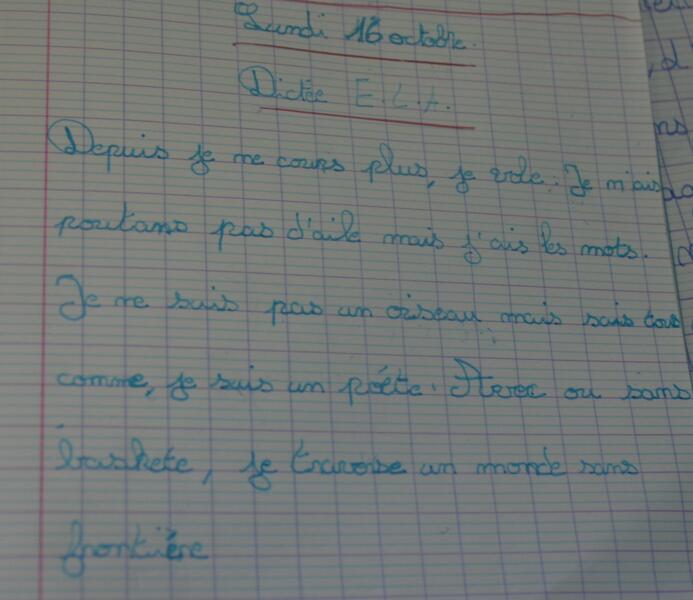 Lundi 16 octobre.
Dictée E.L.A.
Depuis je ne cours plus, je vole. Je n'ais
poutans pas d'aile mais j'ais les mots.
Je ne suis pas un oiseau mais sais
comme, je suis un poéte. Avec ou sans
baskete, je traverse un monde sans
frontière